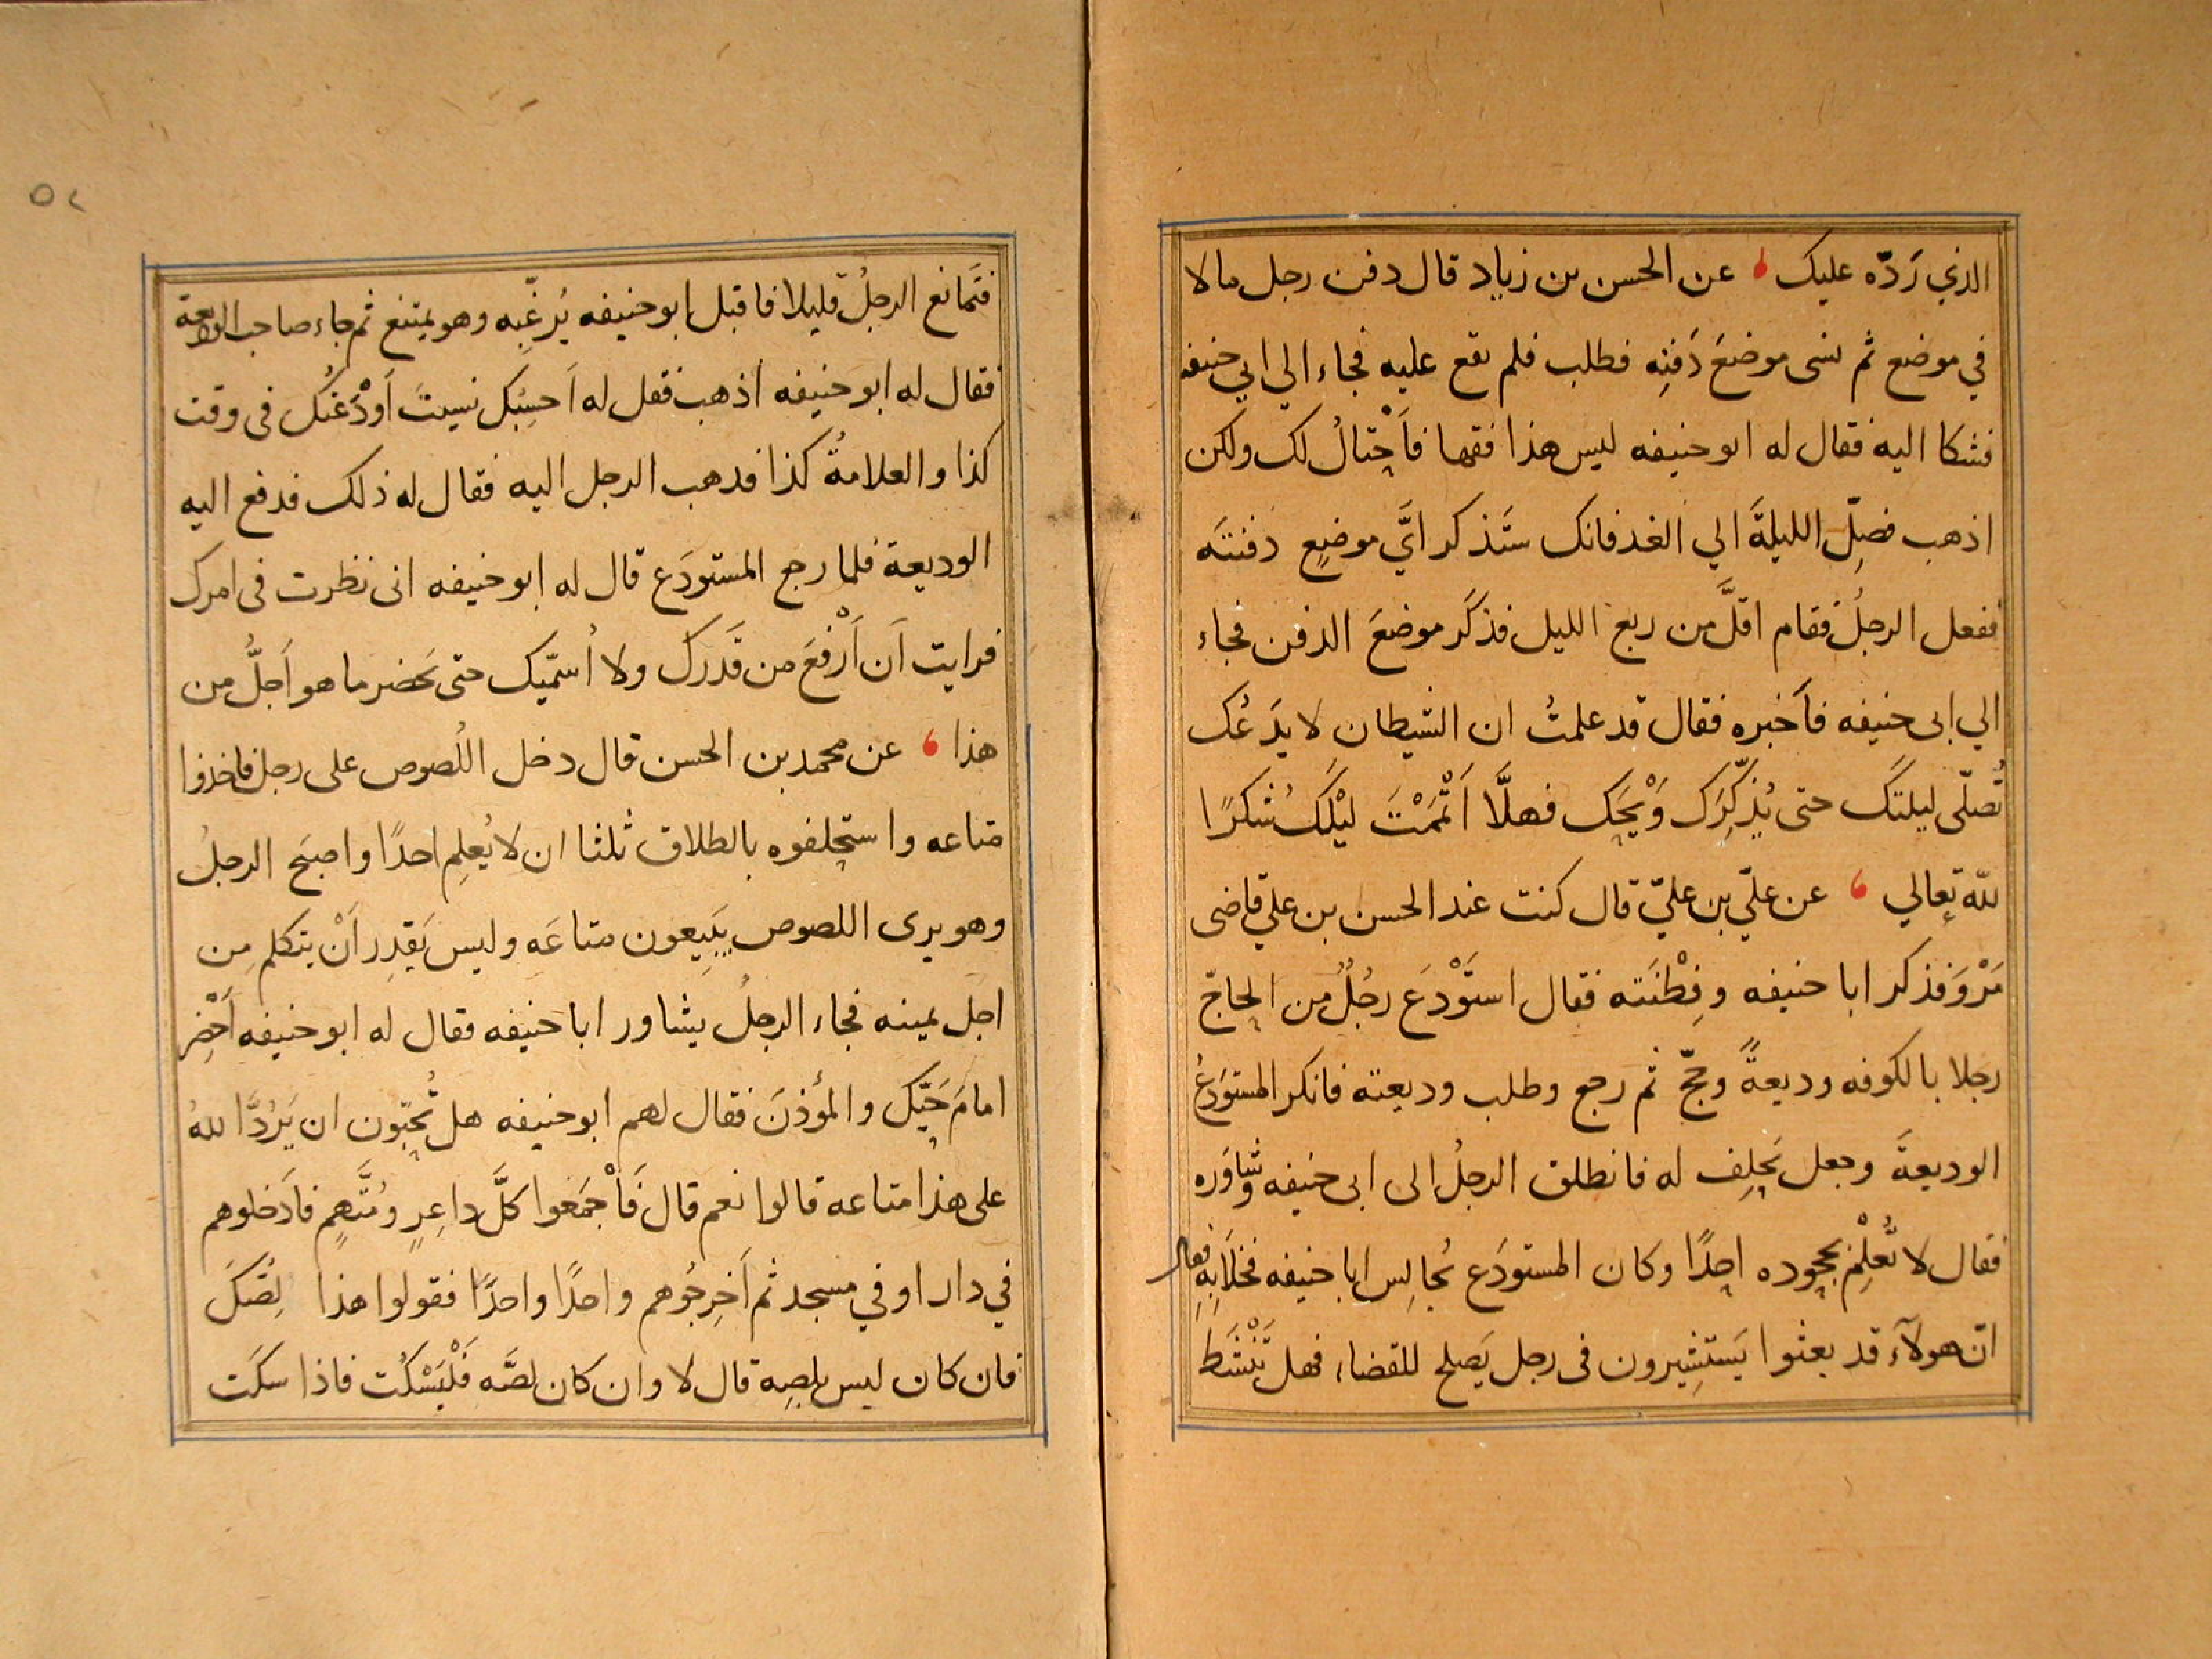 الذي رَدّه عليك عن الحسن بن زياد قال دفن رجل مالا
في موضع ثم نسى موضعَ دَفنِه فطلب فلم يقع عليه فجاء الي ابي حنيفه
فشكا اليه فقال له ابو حنيفه ليس هذا فقها فاَحْتالُ لك ولكن
اذهب فصِلّ الليلةَ الي الغد فانك ستَذكر ايَّ موضعٍ دفنتَه
ففعل الرجلُ فقام اقلَّ من ربع الليل فذكَر موضعَ الدفن فجاء
الي ابى حنيفه فاَخبره فقال قد علمتُ ان الشيطان لا يدَعُك
تُصلّى ليلتَك حتى يُذكِّرَك وَيْحَك فهلَّا اَتْمَمْتَ ليْلَك شُكرًا
للّه تعالي عن عليّ بن عليّ قال كنت عند الحسن بن علي قاضى
مَرْوَ فذكر ابا حنيفه وفِطْنَته فقال استَوْدعَ رجُلٌ من الحاجّ
رجلا بالكوفه وديعةً وحجّ ثم رجع وطلب وديعته فانكر المستودَعُ
الوديعةَ وجعل يَحلِف له فانطلق الرجلُ الى ابى حنيفه وشاوَره
فقال لا تُعْلِمْ بجحوده احدًا وكان المستودَع يُجالِس ابا حنيفه فخلَا بِه فقال
انّ هولآء قد بعثوا يَستشِيرون فى رجل يَصلح للقضاء فهل تَنْشَط
٥٢
فتَمانع الرجلُ قليلا فاقبل ابو حنيفه يُرغّبِه وهو يمتنع ثم جاء صاحب الوديعة
فقال له ابو حنيفه اذهب فقل له اَحسِبُك نسيتَ اَوْدَعْتُك فى وقت
كذا والعلامةُ كذا فدهب الرجل اليه فقال له ذلك فدفع اليه
الوديعة فلما رجع المستودَع قال له ابو حنيفه انى نظرت فى امرك
فرايت اَن اَرْفعَ من قَدَرك ولا اُسمّيك حتى يَحضر ما هو اَجلُّ من
هذا عن محمد بن الحسن قال دخل اللُصوص على رجل فاخذوا
متاعه واستحلفوه بالطلاق ثلثا ان لا يُعلِم احدًا واصبَح الرجلُ
وهو يرى اللصوص يَبِيعون متاعَه وليس يَقدِر اَنْ يتكلم مِن
اجَل يمينه فجاء الرجلُ يشاور ابا حنيفه فقال له ابو حنيفه اَحْضِر
امامَ حَيّك والمؤذنَ فقال لهم ابو حنيفه هل تُحبّون ان يَرُدَّ اللهُ
على هذا متاعه قالوا نعم قال فَاْجمَعوا كلَّ داعِرٍ ومُتَّهمٍ فاَدخلوهم
في دار او في مسجد ثم اَخرِجُوهم واحدًا واحدًا فقولوا هذا لِصُّكَ
فان كان ليس بلصِه قال لا وان كان لصَّه فَلْيَسْكُت فاذا سكَت